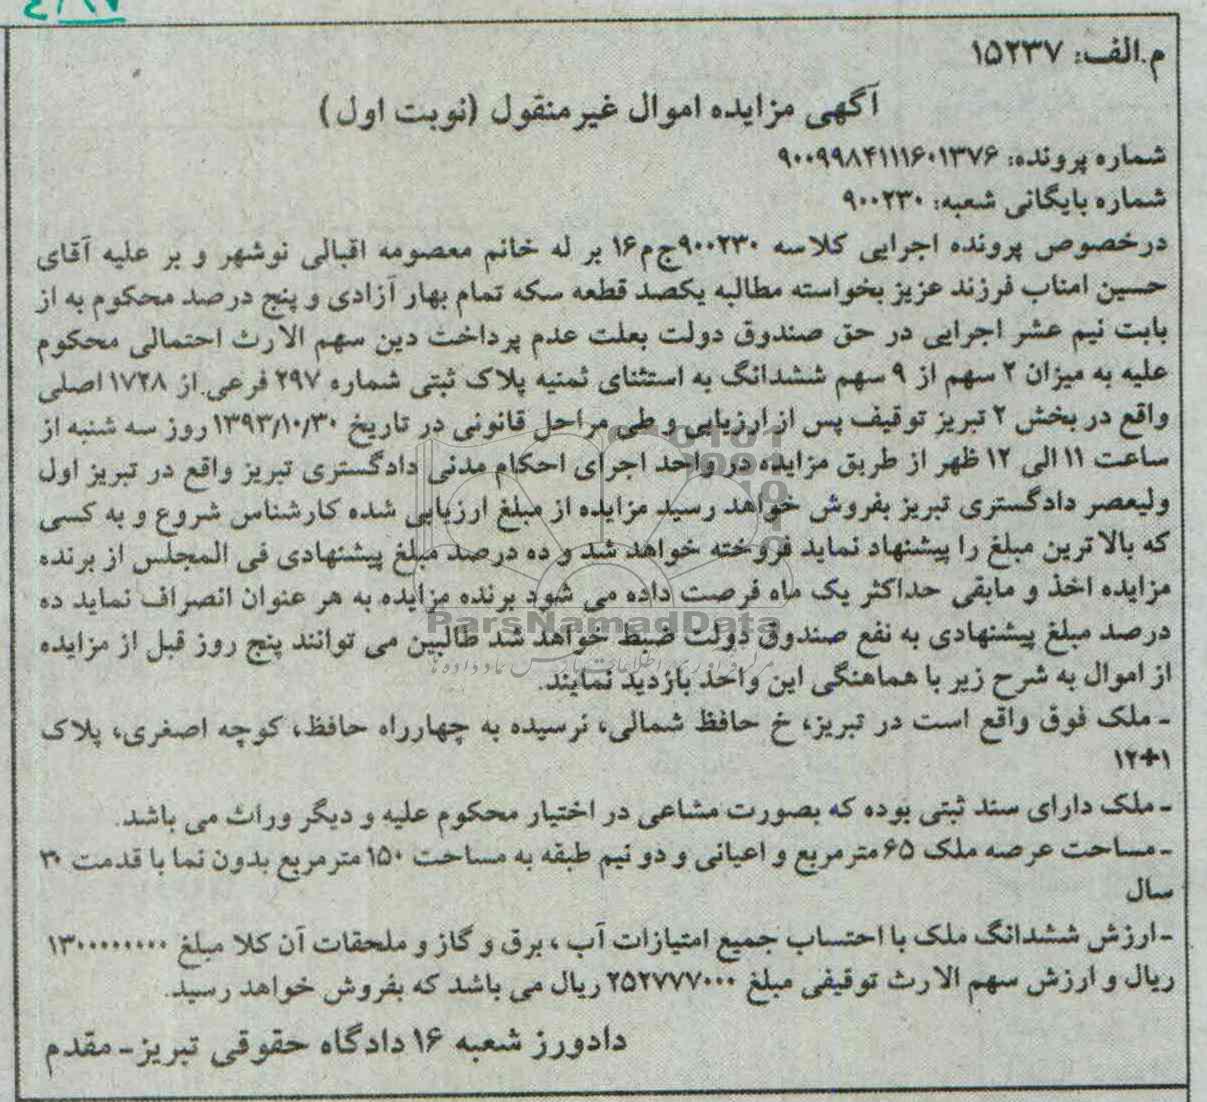 م.الف: ۱۵۲۳۷
آگهی مزایده اموال غیرمنقول (نوبت اول)
شماره پرونده: ۹۰۰۹۹۸۴۱۱۱۶۰۱۳۷۶
شماره بایگانی شعبه: ۹۰۰۲۳۰
درخصوص پرونده اجرایی کلاسه ۹۰۰۲۳۰ج‌م۱۶ بر له خانم معصومه اقبالی نوشهر و بر علیه آقای
حسین امناب فرزند عزیز بخواسته مطالبه یکصد قطعه سکه تمام بهار آزادی و پنج درصد محکوم به از
بابت نیم عشر اجرایی در حق صندوق دولت بعلت عدم پرداخت دین سهم الارث احتمالی محکوم
علیه به میزان ۲ سهم از ۹ سهم ششدانگ به استثنای ثمنیه پلاک ثبتی شماره ۲۹۷ فرعی از ۱۷۲۸ اصلی
واقع در بخش ۲ تبریز توقیف پس از ارزیابی و طی مراحل قانونی در تاریخ ۱۳۹۳/۱۰/۳۰ روز سه شنبه از
ساعت ۱۱ الی ۱۲ ظهر از طریق مزایده در واحد اجرای احکام مدنی دادگستری تبریز واقع در تبریز اول
ولیعصر دادگستری تبریز بفروش خواهد رسید مزایده از مبلغ ارزیابی شده کارشناس شروع و به کسی
که بالاترین مبلغ را پیشنهاد نماید فروخته خواهد شد و ده درصد مبلغ پیشنهادی فی المجلس از برنده
مزایده اخذ و مابقی حداکثر یک ماه فرصت داده می شود برنده مزایده به هر عنوان انصراف نماید ده
درصد مبلغ پیشنهادی به نفع صندوق دولت ضبط خواهد شد طالبین می توانند پنج روز قبل از مزایده
از اموال به شرح زیر با هماهنگی این واحد بازدید نمایند.
- ملک فوق واقع است در تبریز، خ حافظ شمالی، نرسیده به چهارراه حافظ، کوچه اصغری، پلاک
۱۲+۱
- ملک دارای سند ثبتی بوده که بصورت مشاعی در اختیار محکوم علیه و دیگر وراث می باشد.
- مساحت عرصه ملک ۶۵ مترمربع و اعیانی و دو نیم طبقه به مساحت ۱۵۰ مترمربع بدون نما با قدمت ۳۰
سال
- ارزش ششدانگ ملک با احتساب جمیع امتیازات آب، برق و گاز و ملحقات آن کلا مبلغ ۱۳۰۰۰۰۰۰۰۰
ریال و ارزش سهم الارث توقیفی مبلغ ۲۵۲۷۷۷۰۰۰ ریال می باشد که بفروش خواهد رسید.
دادورز شعبه ۱۶ دادگاه حقوقی تبریز - مقدم
ParsNamadData